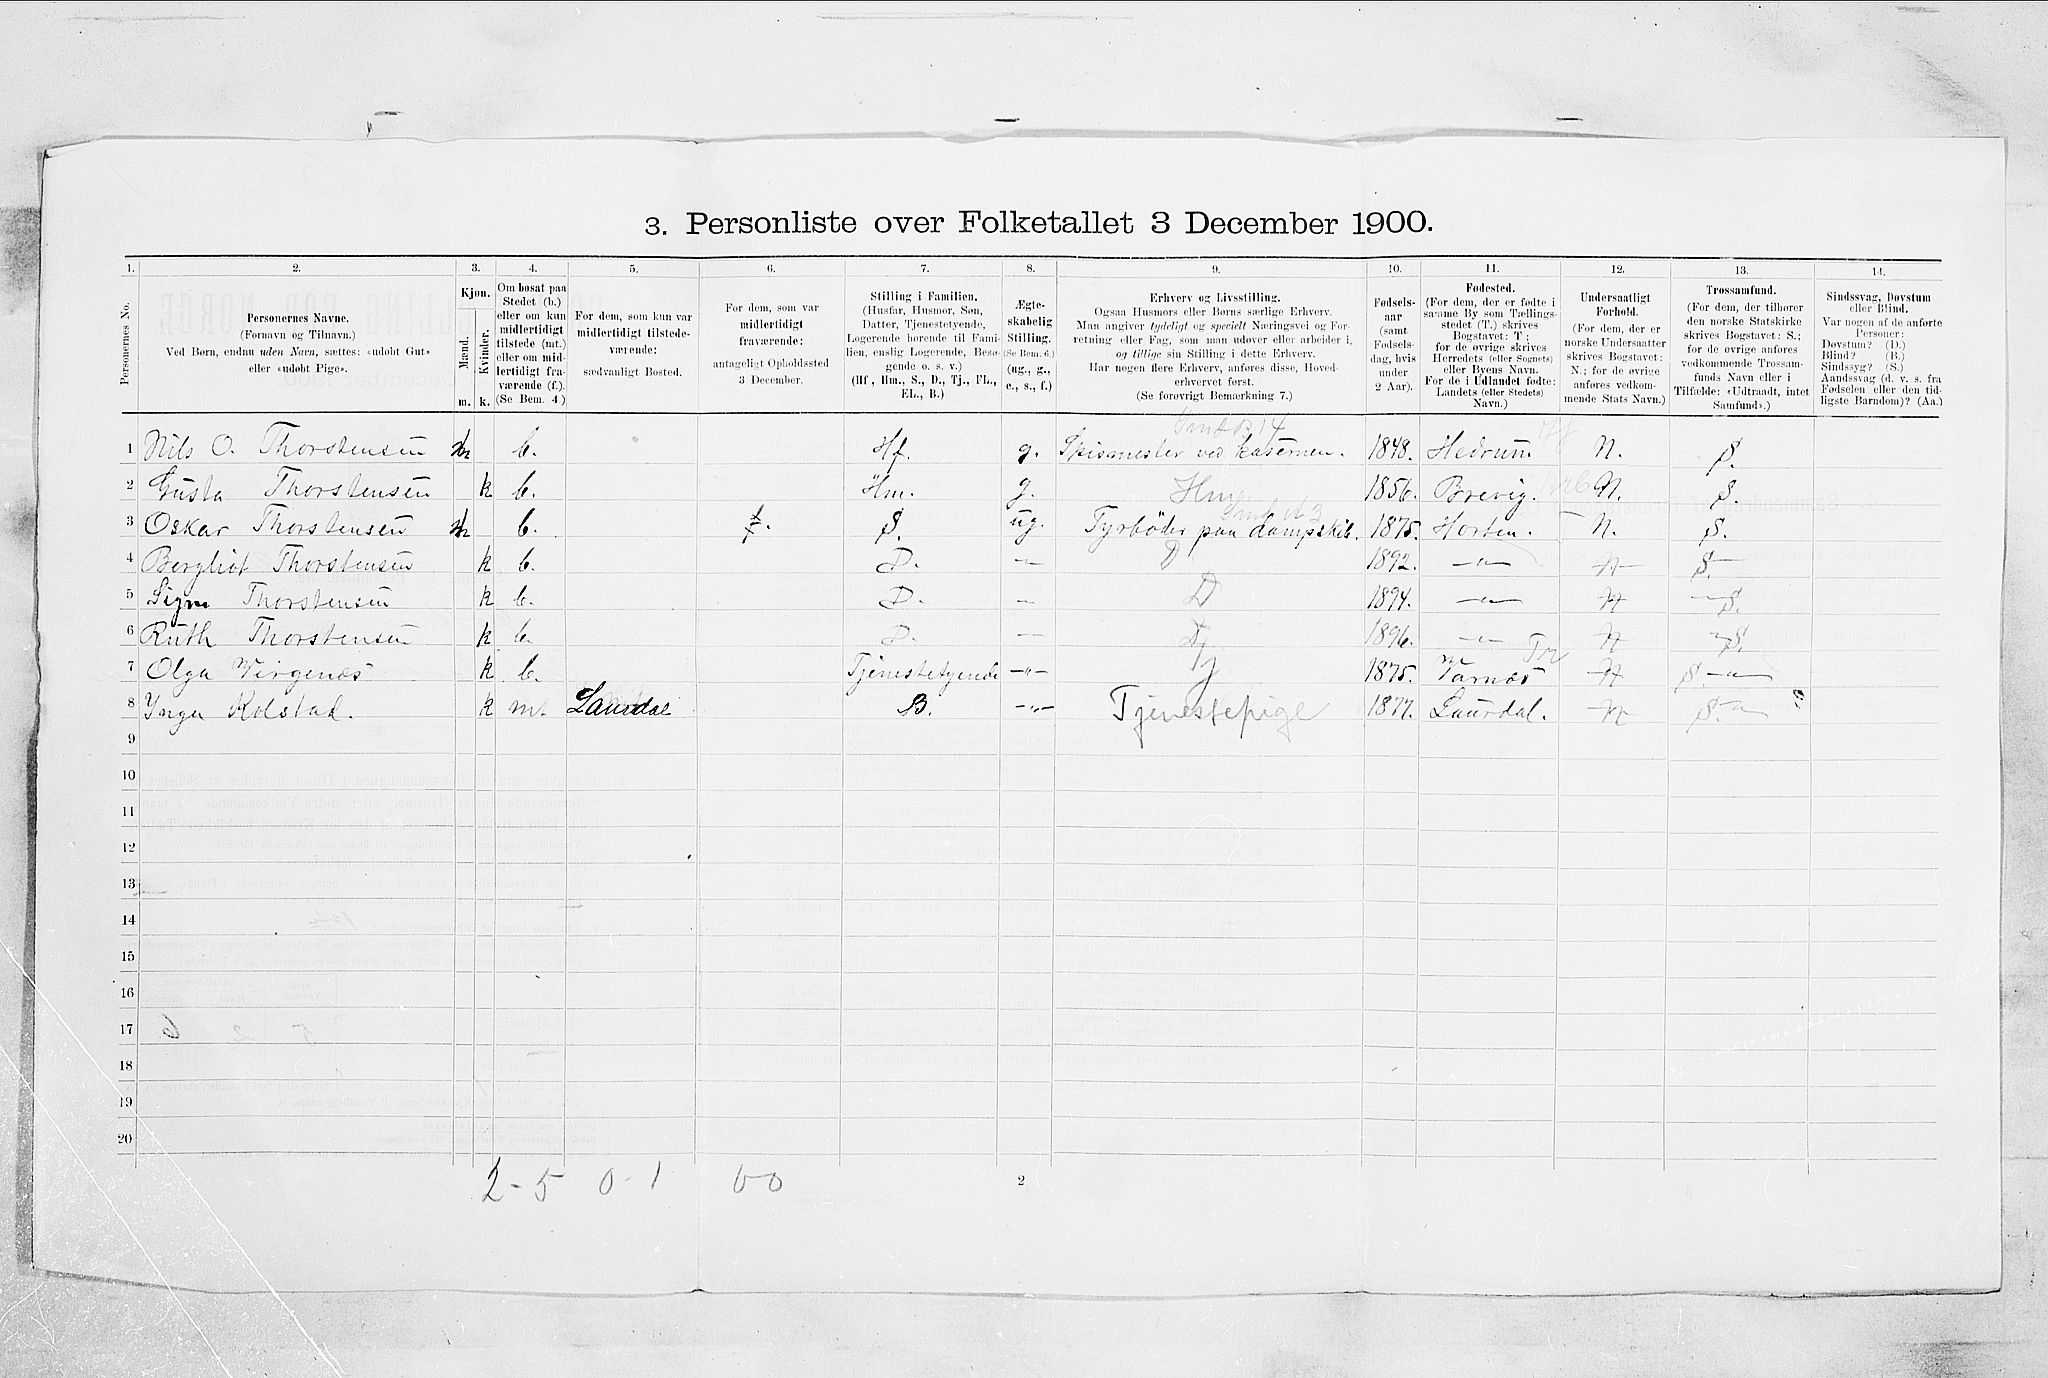 3. Personliste over Folketallet 3 December 1900.
1. 2. 3. 4. 5. 6. 7. 8. 9. 10. 11. 12. 13. 14.
Personernes No.
Personernes Navne.
(Fornavn og Tilnavn.)
Ved Børn, endnu uden Navn, sættes: «udøbt Gut»
eller «udøbt Pige».
Kjøn.
Mænd.
Kvinder.
m. k.
Om bosat paa
Stedet (b.)
eller om kun
midlertidigt
tilstede (mt.)
eller om mid-
lertidigt fra-
værende (f.).
(Se Bem. 4.)
For dem, som kun var
midlertidigt tilstede-
værende:
sædvanligt Bosted.
For dem, som var
midlertidigt
fraværende:
antageligt Opholdssted
3 December.
Stilling i Familien.
(Husfar, Husmor, Søn,
Datter, Tjenestetyende,
Logerende hørende til Fami-
lien, enslig Logerende, Besø-
gende o. s. v.)
(Hf., Hm., S., D., Tj., FL.,
EL., B.)
Ægte-
skabelig
Stilling.
(Se Bem. 6.)
(ug., g.,
e., s., f.)
Erhverv og Livsstilling.
Ogsaa Husmors eller Børns særlige Erhverv.
Man angiver tydeligt og specielt Næringsvei og For-
retning eller Fag, som man udøver eller arbeider i,
og tillige sin Stilling i dette Erhverv.
Har nogen flere Erhverv, anføres disse, Hoved-
erhvervet først.
(Se forøvrigt Bemærkning 7.)
Fødsels-
aar
(samt
Fødsels-
dag, hvis
under
2 Aar).
Fødested.
(For dem, der er fødte i
samme By som Tællings-
stedet (T.) skrives
Bogstavet: T;
for de øvrige skrives
Herredets (eller Sognets)
eller Byens Navn.
For de i Udlandet fødte:
Landets (eller Stedets)
Navn.)
Undersaatligt
Forhold.
(For dem, der er
norske Undersaatter
skrives Bogstavet:
N.; for de øvrige
anføres vedkom-
mende Stats Navn.)
Trossamfund.
(For dem, der tilhører
den norske Statskirke
skrives Bogstavet: S.;
for de øvrige anføres
vedkommende Trossam-
funds Navn eller i
Tilfælde: «Udtraadt, intet
Samfund».)
Sindssvag, Døvstum
eller Blind.
Var nogen af de anførte
Personer:
Døvstum? (D.)
Blind? (B.)
Sindssyg? (S.)
Aandssvag (d. v. s. fra
Fødselen eller den tid-
ligste Barndom)? (Aa.)
1 Nils O. Thorstensen m b. Hf. g. Spismester ved kasernen. 1848. Hedrum N. S.
2 Gusta Thorstensen k b. Hm. g. Hm 1856. Brevig. N. S.
3 Oskar Thorstensen m b. f. S. ug. Fyrbøder paa dampskib. 1875. Horten. N. S.
4 Bergliot Thorstensen k b. D. — D 1892. —"— N S.
5 Sign Thorstensen k b. D. — D 1894. —"— N S.
6 Ruth Thorstensen k b. D. — 1896. —"— N S.
7 Olga Virgenæs k b. Tjenestetyende —"— Tj 1875. Tjø Varnæs N S.
8 Inga Kolstad. k mt. Laurdal B. —"— Tjenestepige 1877. Laurdal. N S.
9
10
11
12
13
14
15
16
17
18
19
20
2-5 0-1 00
2